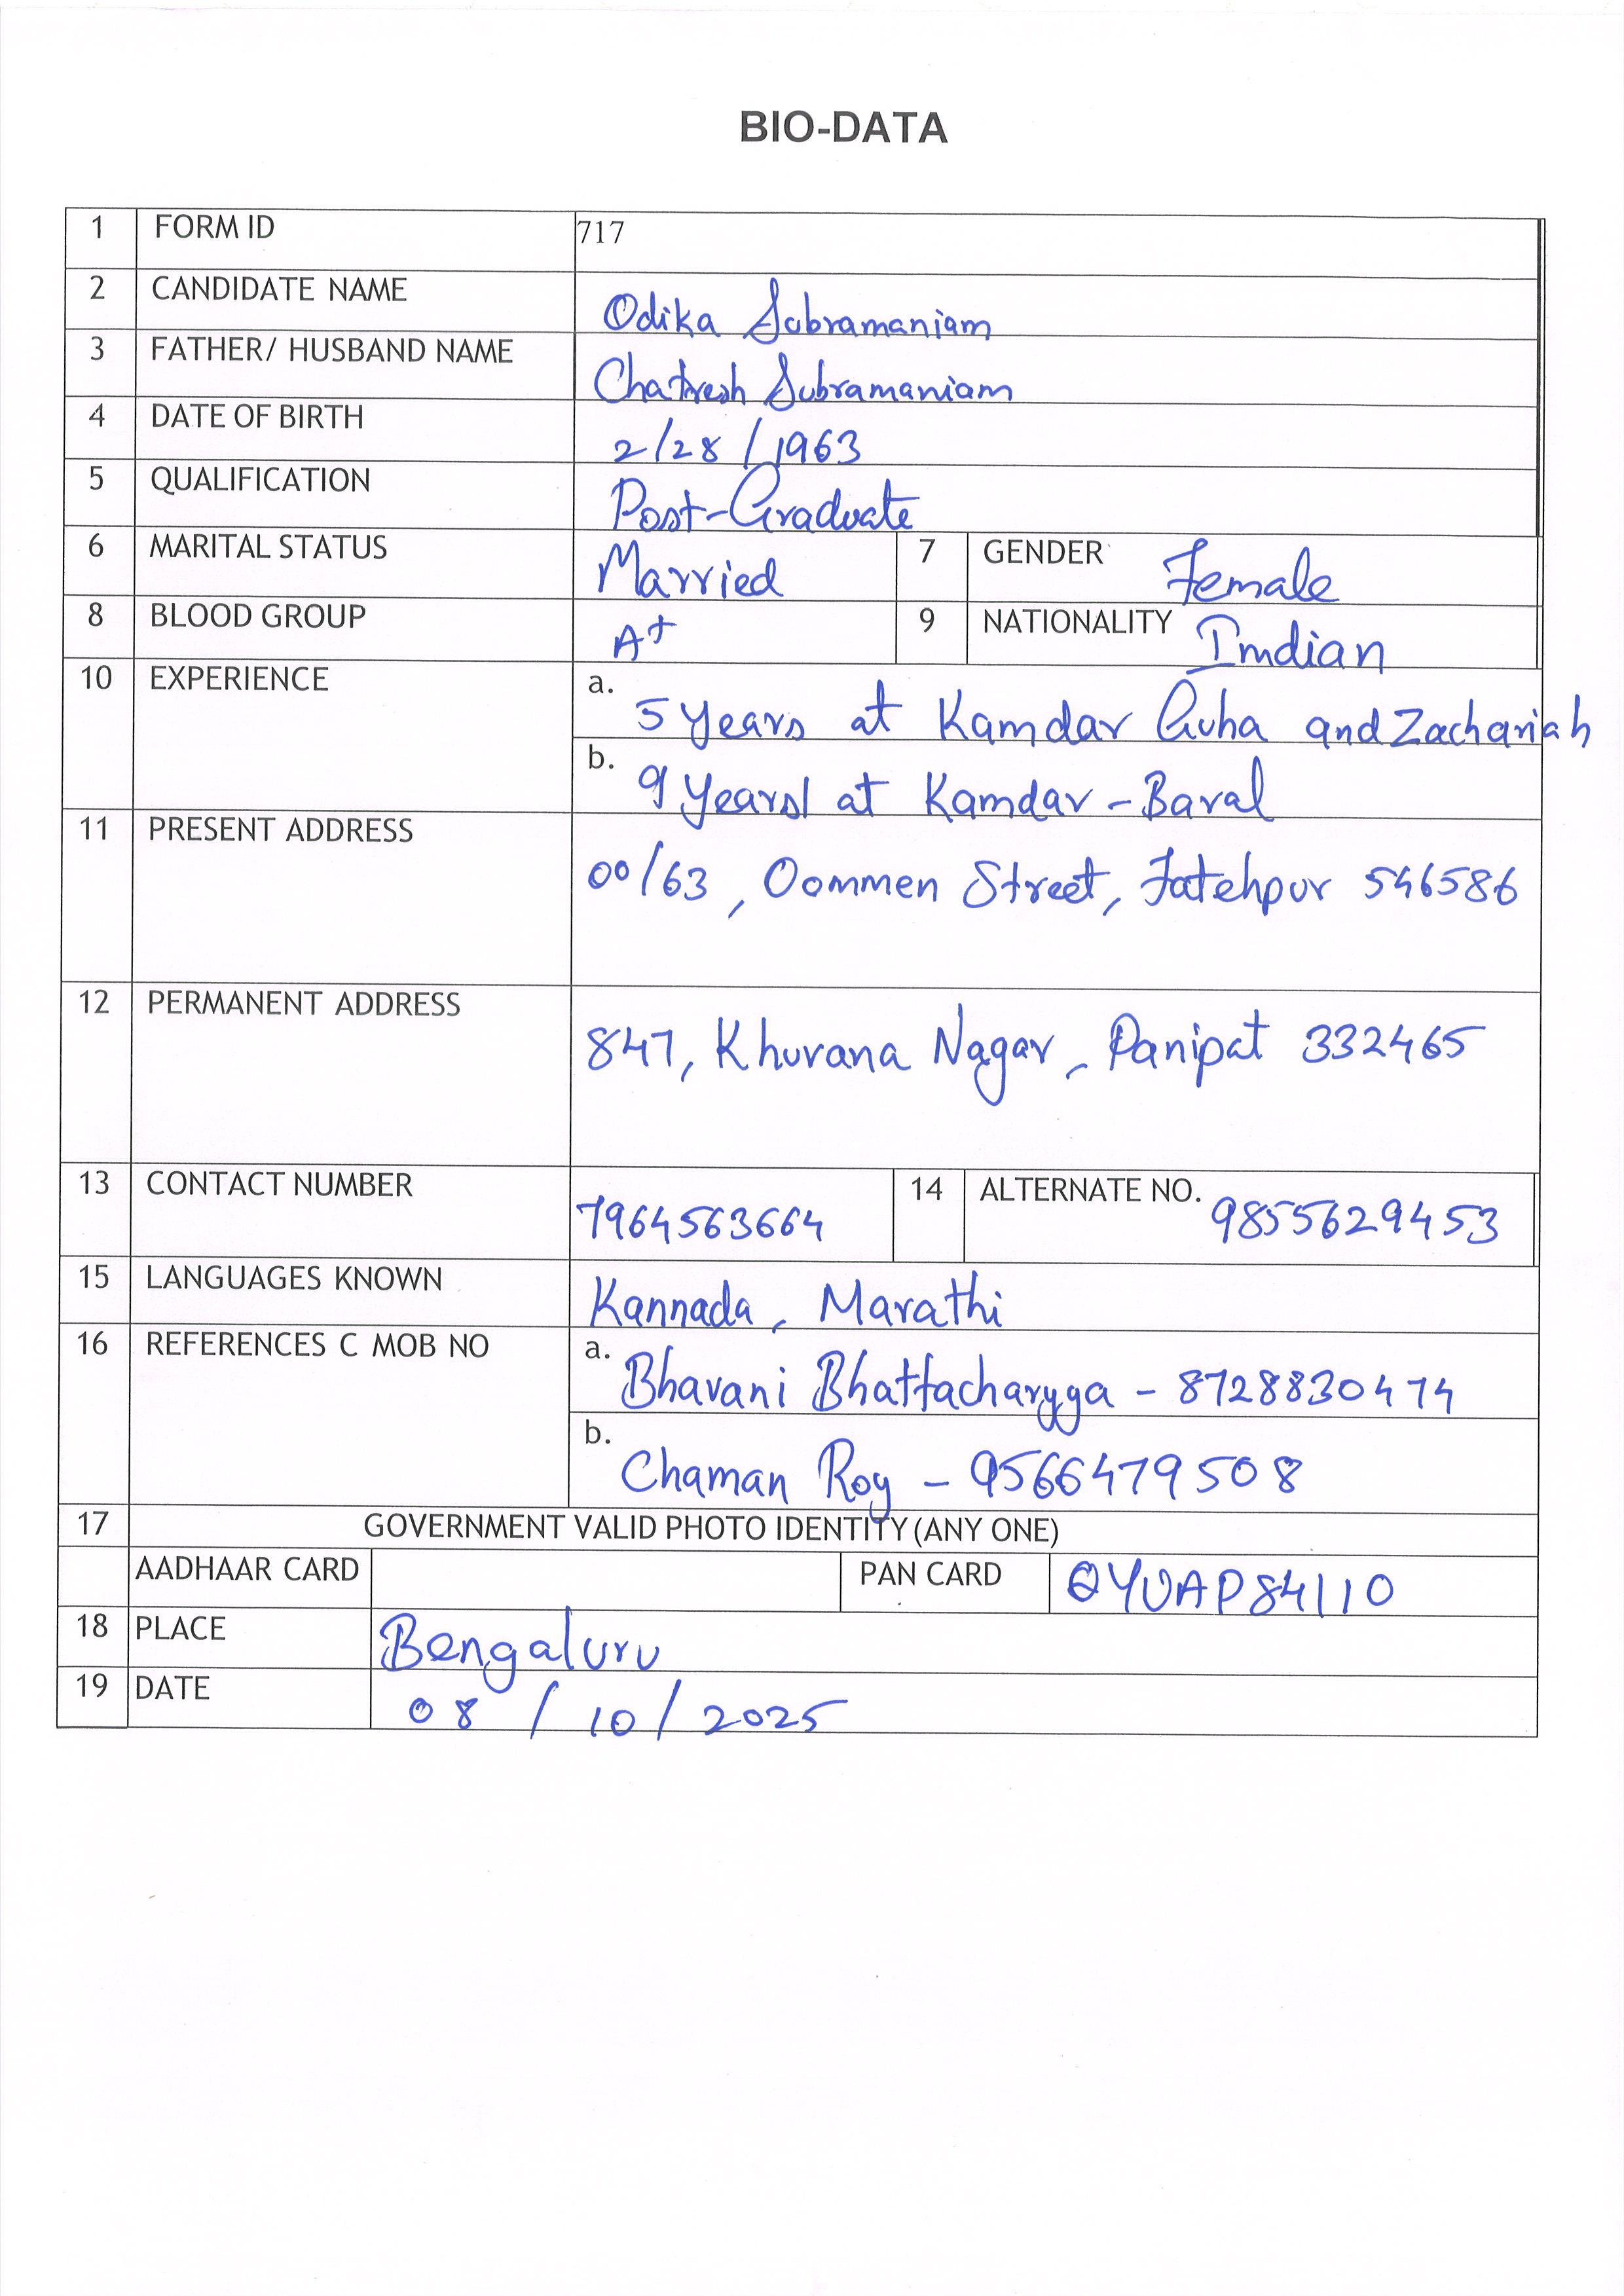 BIO-DATA
1 FORM ID 717
2 CANDIDATE NAME Odika Subramaniam
3 FATHER/ HUSBAND NAME Chatresh Subramaniam
4 DATE OF BIRTH 2/28/1963
5 QUALIFICATION Post-Graduate
6 MARITAL STATUS Married 7 GENDER Female
8 BLOOD GROUP A+ 9 NATIONALITY Indian
10 EXPERIENCE a. 5 Years at Kamdar Guha and Zachariah
b. 9 Years at Kamdar-Baral
11 PRESENT ADDRESS 00/63, Oommen Street, Fatehpur 546586
12 PERMANENT ADDRESS 847, Khurana Nagar, Panipat 332465
13 CONTACT NUMBER 7964563664 14 ALTERNATE NO. 9855629453
15 LANGUAGES KNOWN Kannada, Marathi
16 REFERENCES C MOB NO a. Bhavani Bhattacharyya - 8728830474
b. Chaman Roy - 9566479508
17 GOVERNMENT VALID PHOTO IDENTITY (ANY ONE)
AADHAAR CARD PAN CARD QYUAP8411O
18 PLACE Bengaluru
19 DATE 08/10/2025